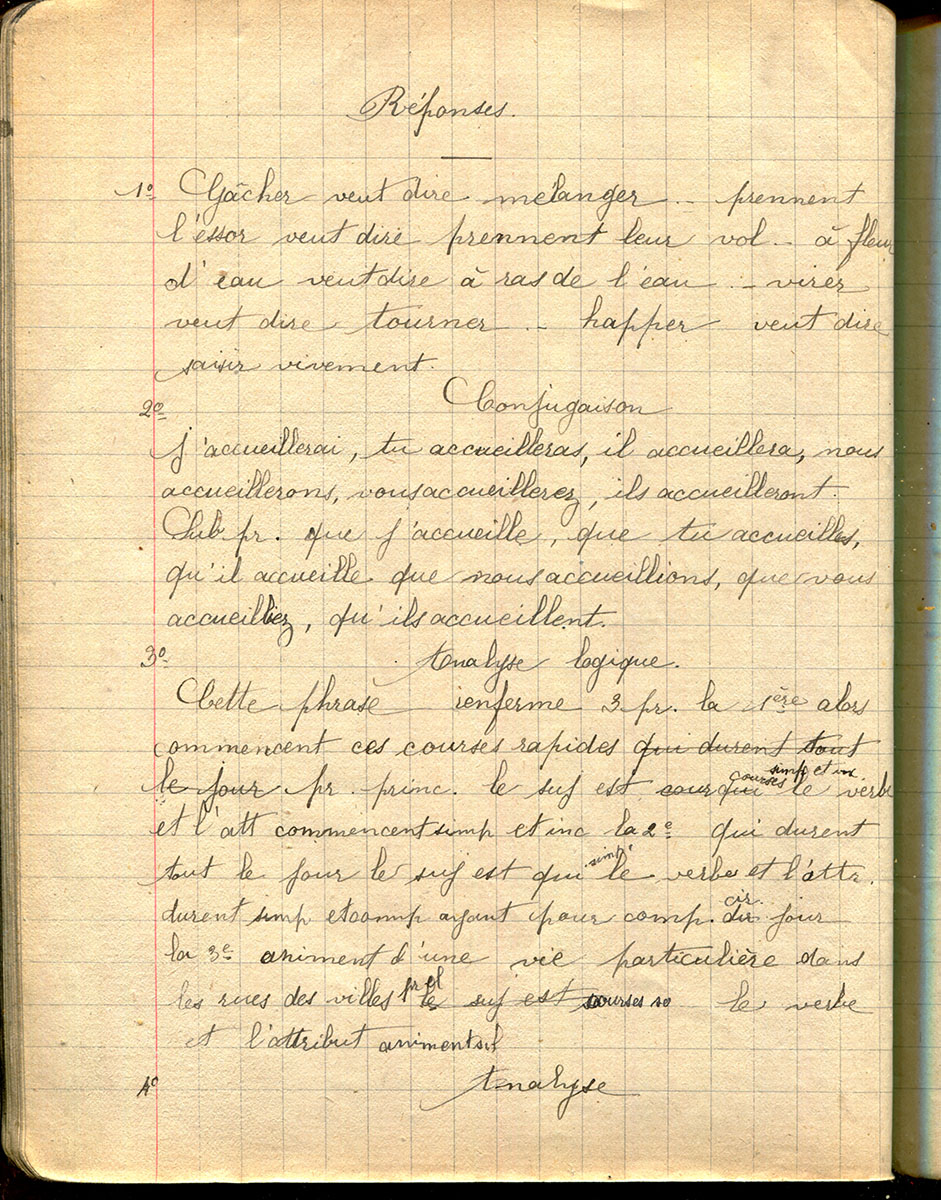 Réponses.
1º Gâcher veut dire mélanger .. prennent
l'éssor veut dire prennent leur vol .. à fleur
d'eau veut dire à ras de l'eau .. virer
veut dire tourner .. happer veut dire
saisir vivement.
2º Conjugaison
J'accueillerai, tu accueilleras, il accueillera, nous
accueillerons, vous accueillerez, ils accueilleront.
Sub pr. que j'accueille, que tu accueilles,
qu'il accueille que nous accueillions, que vous
accueilliez, qu'ils accueillent.
3º Analyse logique.
Cette phrase renferme 3 pr. la 1ère alors
commencent ces courses rapides qui durent tout
le jour pr. princ. le suj est cour qui courses simp et le verbe
et l'att commencent simp et inc la 2e qui durent
tout le jour le suj est qui simp le verbe et l'attr.
durent simp et comp ayant pour comp. cir. du jour
la 3e animent d'une vie particulière dans
les rues des villes le suj est courses le verbe
et l'attribut animent
4º Analyse